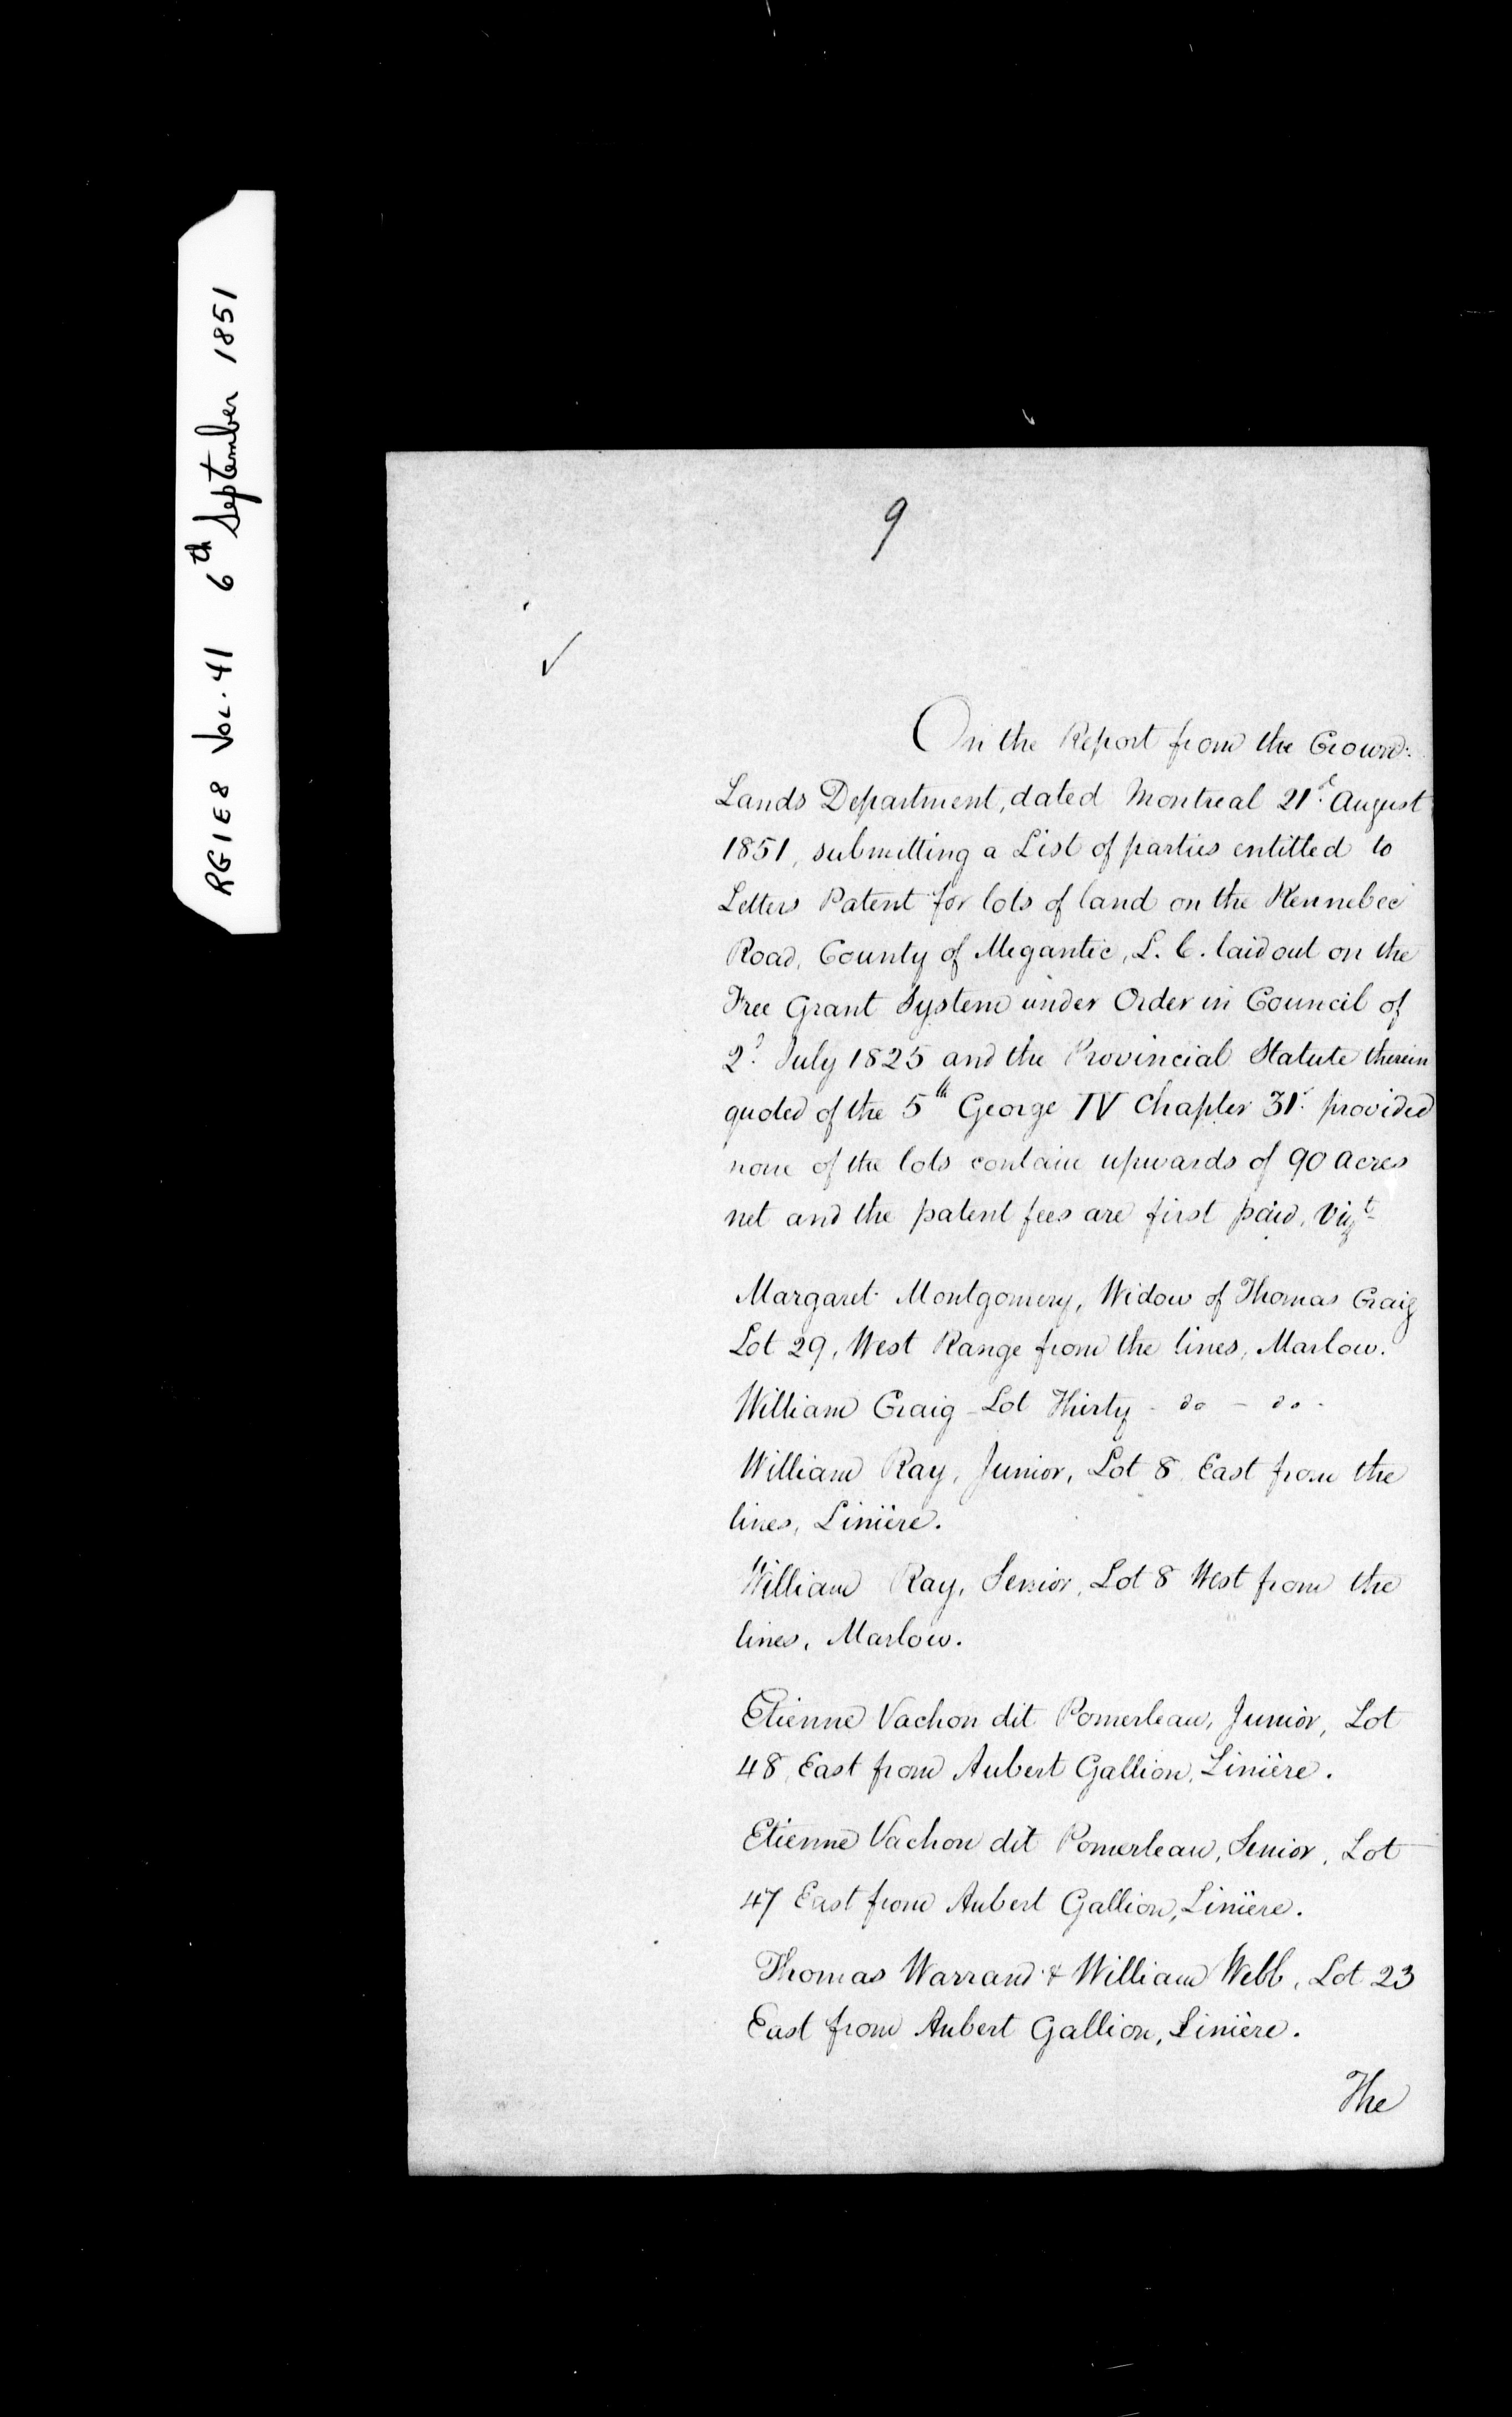 RG1E8 Vol. 41 6th September 1851
9
✓
On the Report from the Crown
Lands Department, dated Montreal 21st August
1851, submitting a List of parties entitled to
Letters Patent for lots of land on the Kennebec
Road, County of Megantic, L. C. laid out on the
Free Grant System under Order in Council of
2d July 1825 and the Provincial Statute therein
quoted of the 5th George IV Chapter 31st provided
none of the lots contain upwards of 90 Acres
net and the patent fees are first paid, Vizt
Margaret Montgomery, Widow of Thomas Craig
Lot 29, West Range from the lines, Marlow.
William Craig - Lot Thirty - do - do -
William Ray, Junior, Lot 8 East from the
lines, Linière.
William Ray, Senior, Lot 8 West from the
lines, Marlow.
Etienne Vachon dit Pomerleau, Junior, Lot
48, East from Aubert Gallion, Linière.
Etienne Vachon dit Pomerleau, Senior, Lot
47 East from Aubert Gallion, Linière.
Thomas Warrand & William Webb, Lot 23
East from Aubert Gallion, Linière.
The